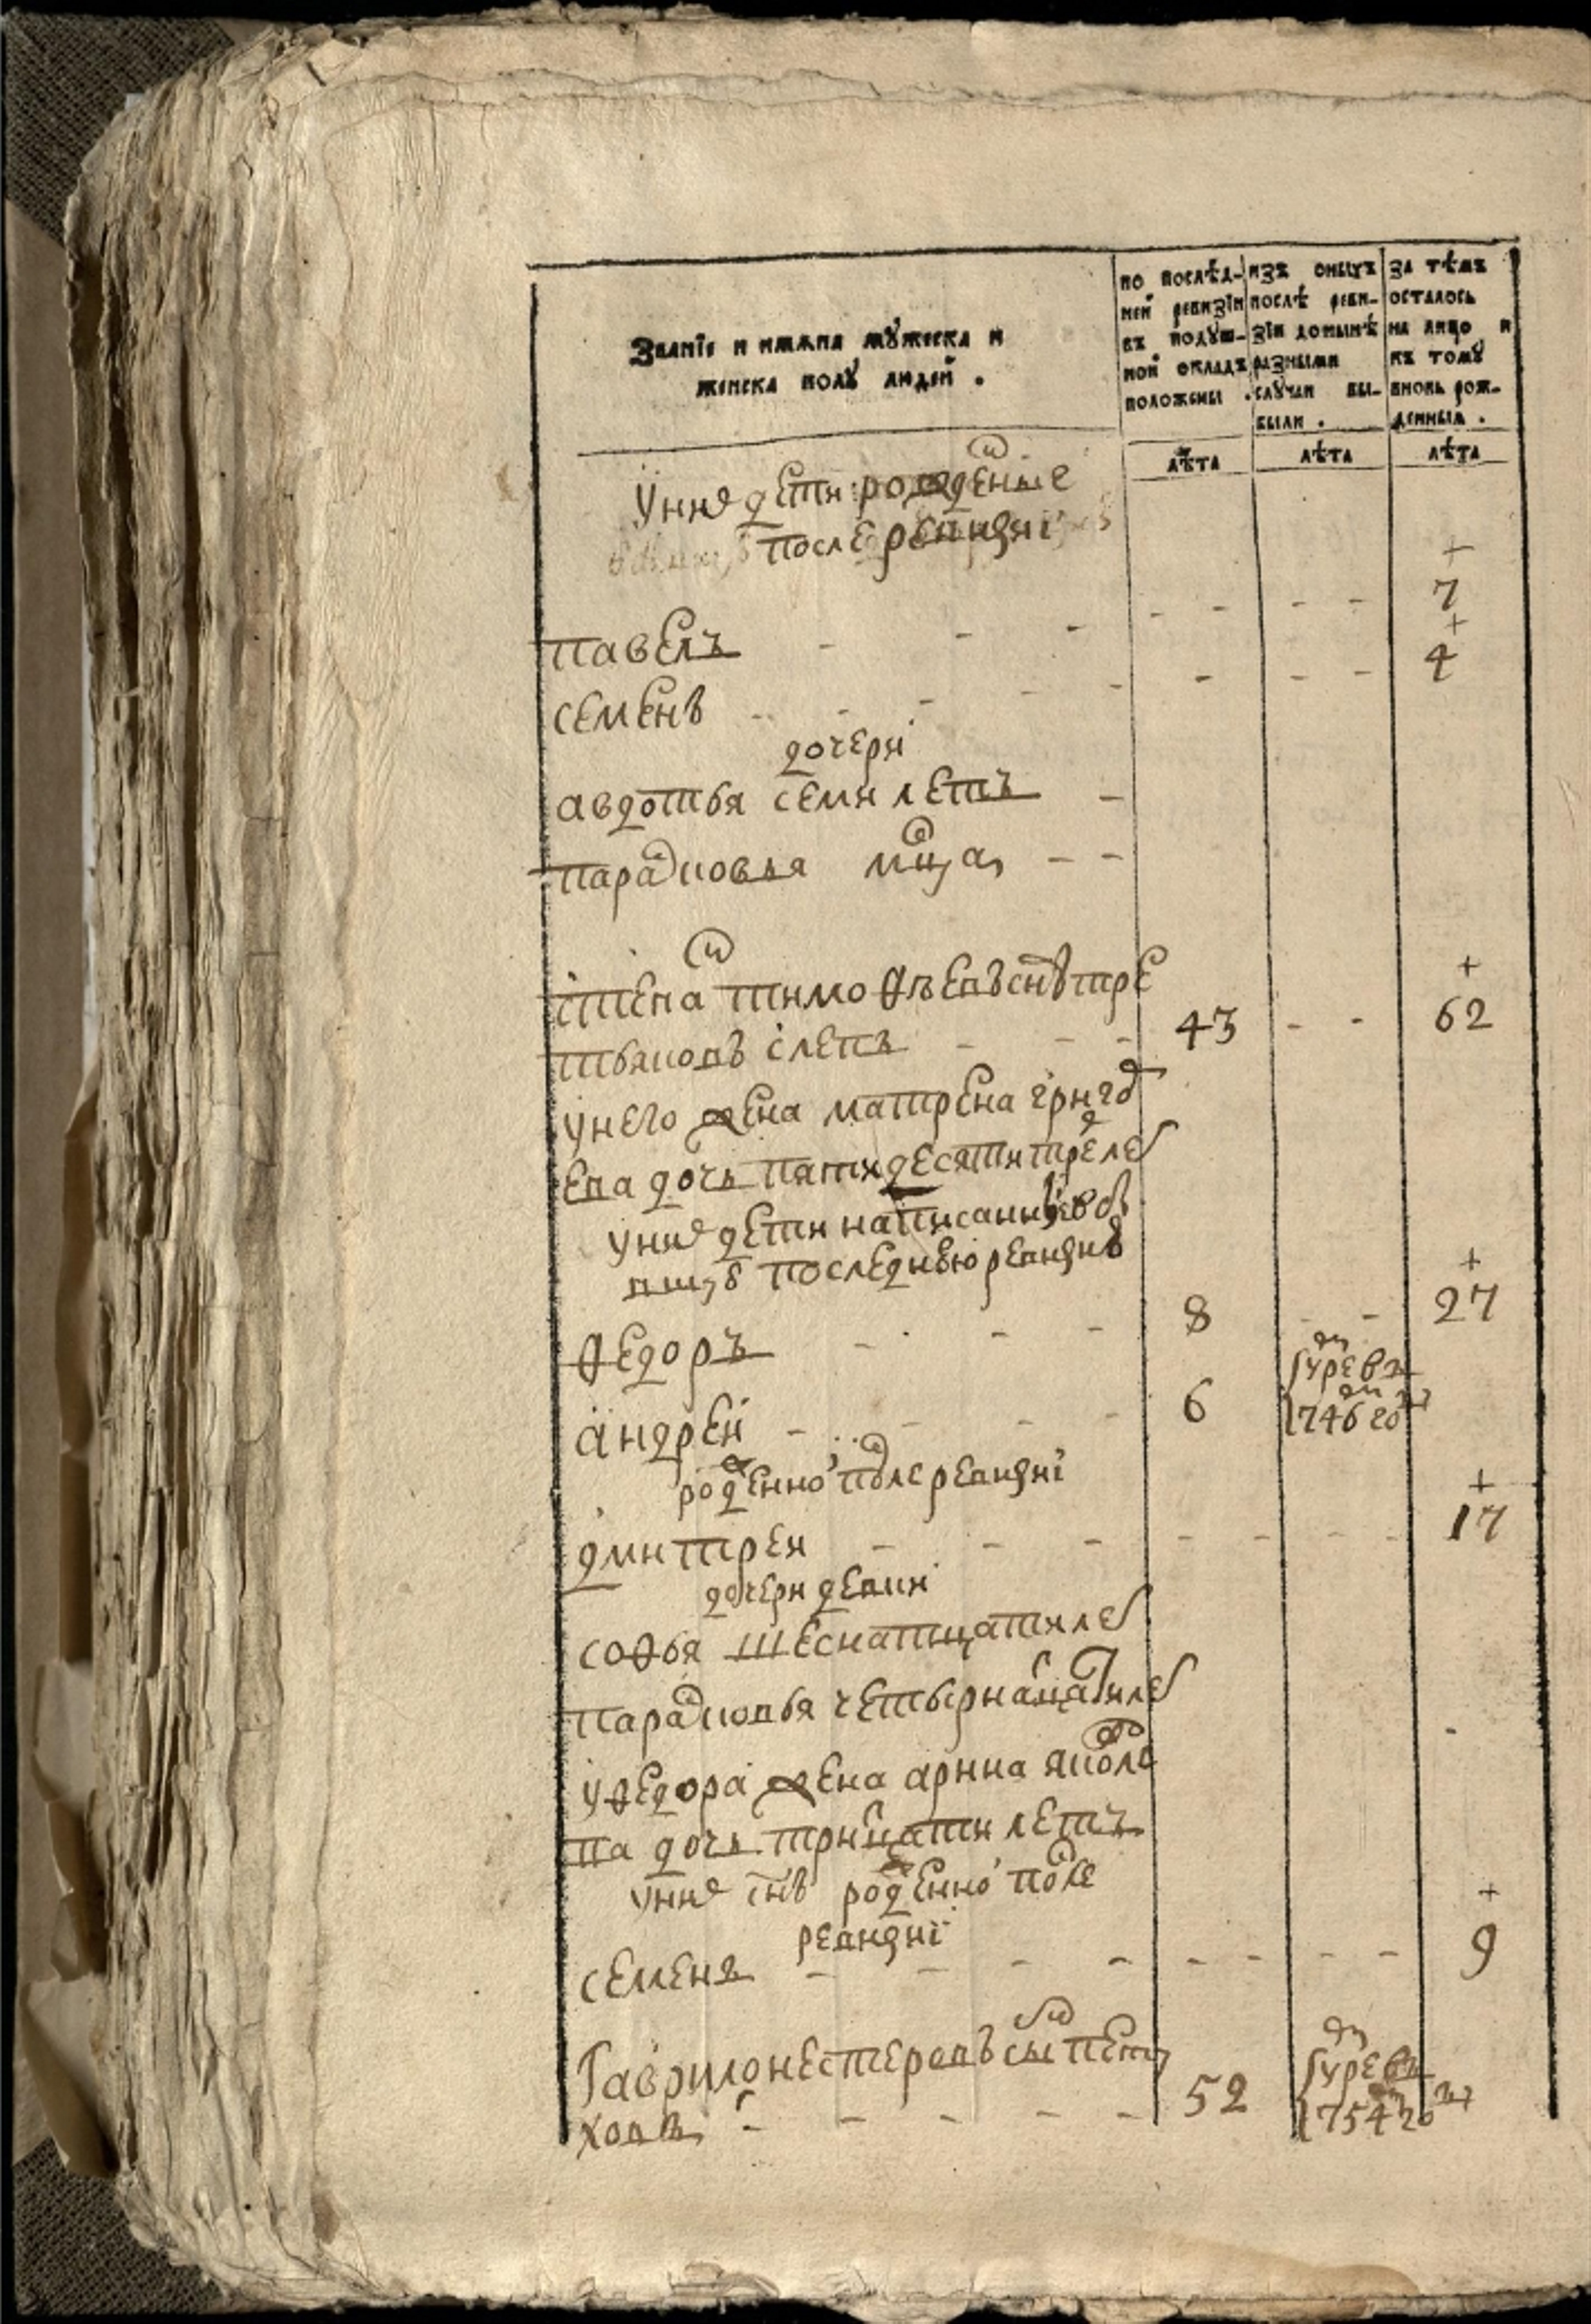 Званїе и имѧна мꙋжеска и
женска полꙋ людей .
по послѣд-
ней ревизїи
въ подꙋш-
ной окладъ
положены .
изъ оныхъ
послѣ реви-
зїи донынѣ
разными
слꙋчаи вы-
были .
за тѣмъ
осталось
на лицо и
къ томꙋ
вновь рож-
денныѧ .
лѣта
лѣта
лѣта
у ниⷯ дети рожденые
после ревизиї
павелъ - - - - - - - 7
семенъ - - - - - - - - 4
дочери
авдотья семи летъ -
параⷭковья - -
степаⷩ тимоѳѣевъ снъ тре
тьяковъ слепъ - - - 43 - - 62
у него жена матрена григоⷬ
ева дочь пятидесяти треⷯ леⷮ
у ниⷯ дети написанные въ
последнюю ревизию
ѳедоръ - - - - 8 - - 27
андрей - - - - 6 умре въ
1746 гоⷣ
рожденной после ревизиї
дмитрей - - - - - - - 17
дочери девки
софья шеснатцати леⷮ
параⷭковья четырнаⷣцати леⷮ
у ѳедора жена арина яковле
ва дочь триⷣцати летъ
у ниⷯ снъ рожденной после
ревизиї
семенъ - - - - - - - - 9
Гаврило нестеровъ сын
ховъ - - - - - 52 умре въ
1754 гоⷣ